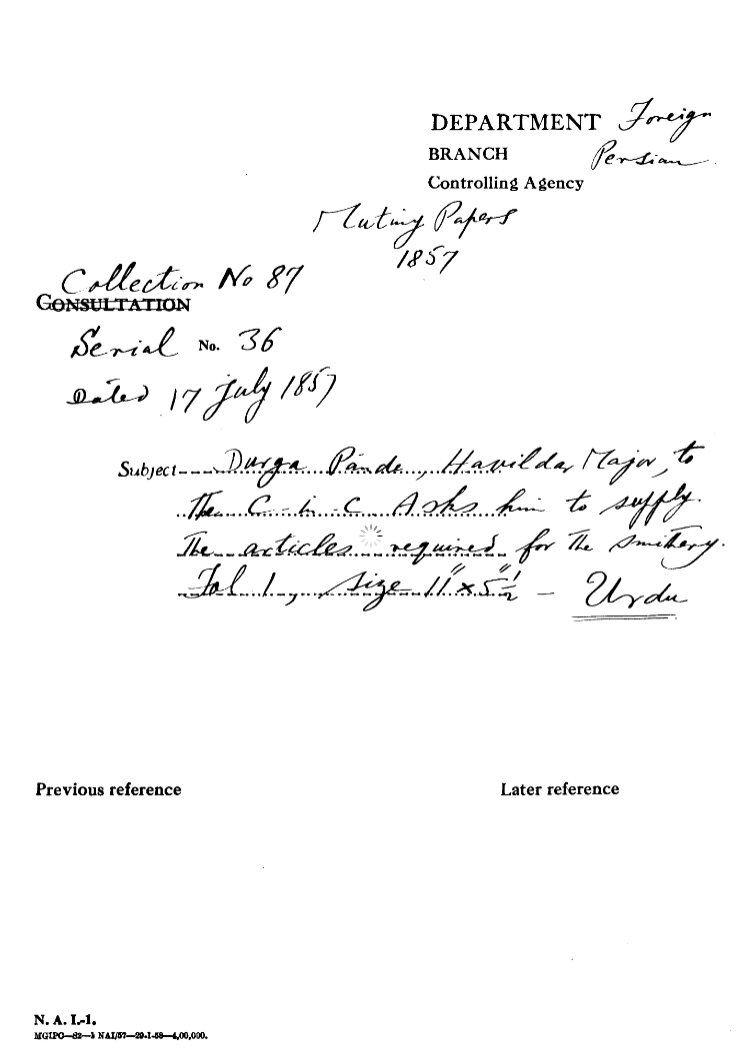 DEPARTMENT Foreign
BRANCH Persian
Controlling Agency
Mutiny Papers
1857
Collection No 87
CONSULTATION
Serial No. 36
Dated 17 July 1857
Subject Durga Pande, Havildar Major, to
the C-in-C Asks him to supply.
The articles required for the smithery.
Fol 1, size 11"x5"½ - Urdu
Previous reference Later reference
N. A. I.-1.
MGIPC—82—1 NAI/57—29-1-58—4,00,000.